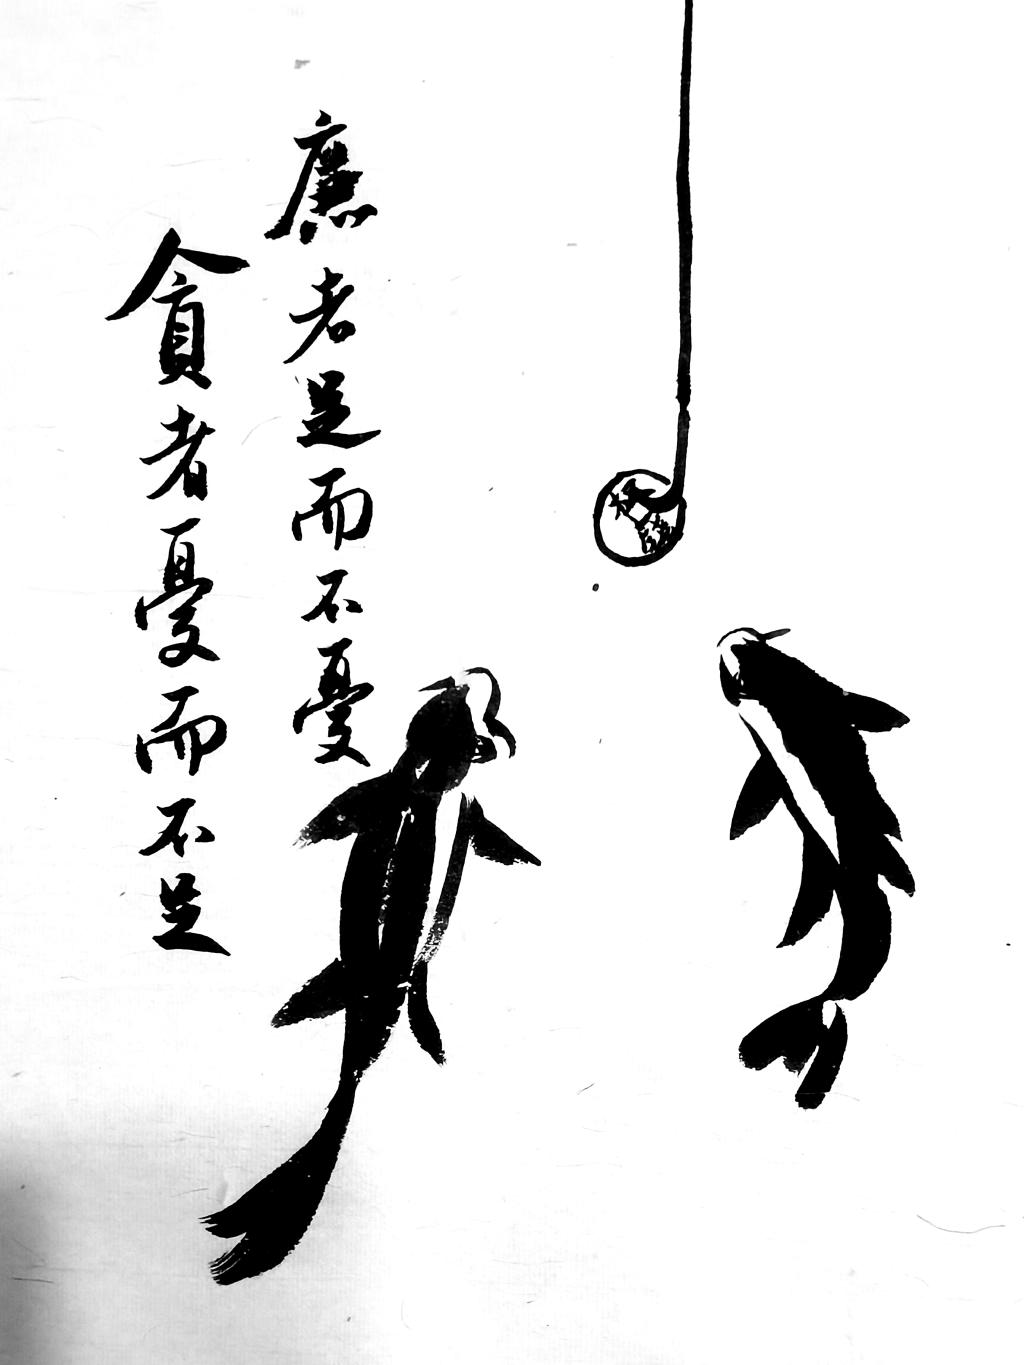 廉者足而不憂
貪者憂而不足